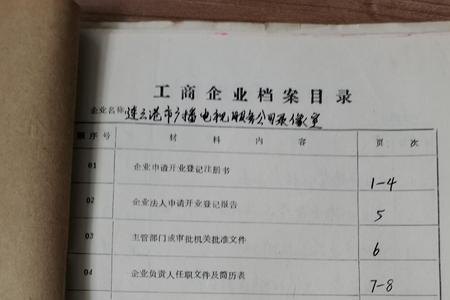 工商企业档案目录
企业名称 连云港市广播电视服务公司录像室
顺序号 材料内容 页次
01 企业申请开业登记注册书 1-4
02 企业法人申请开业登记报告 5
03 主管部门或审批机关批准文件 6
04 企业负责人任职文件及简历表 7-8